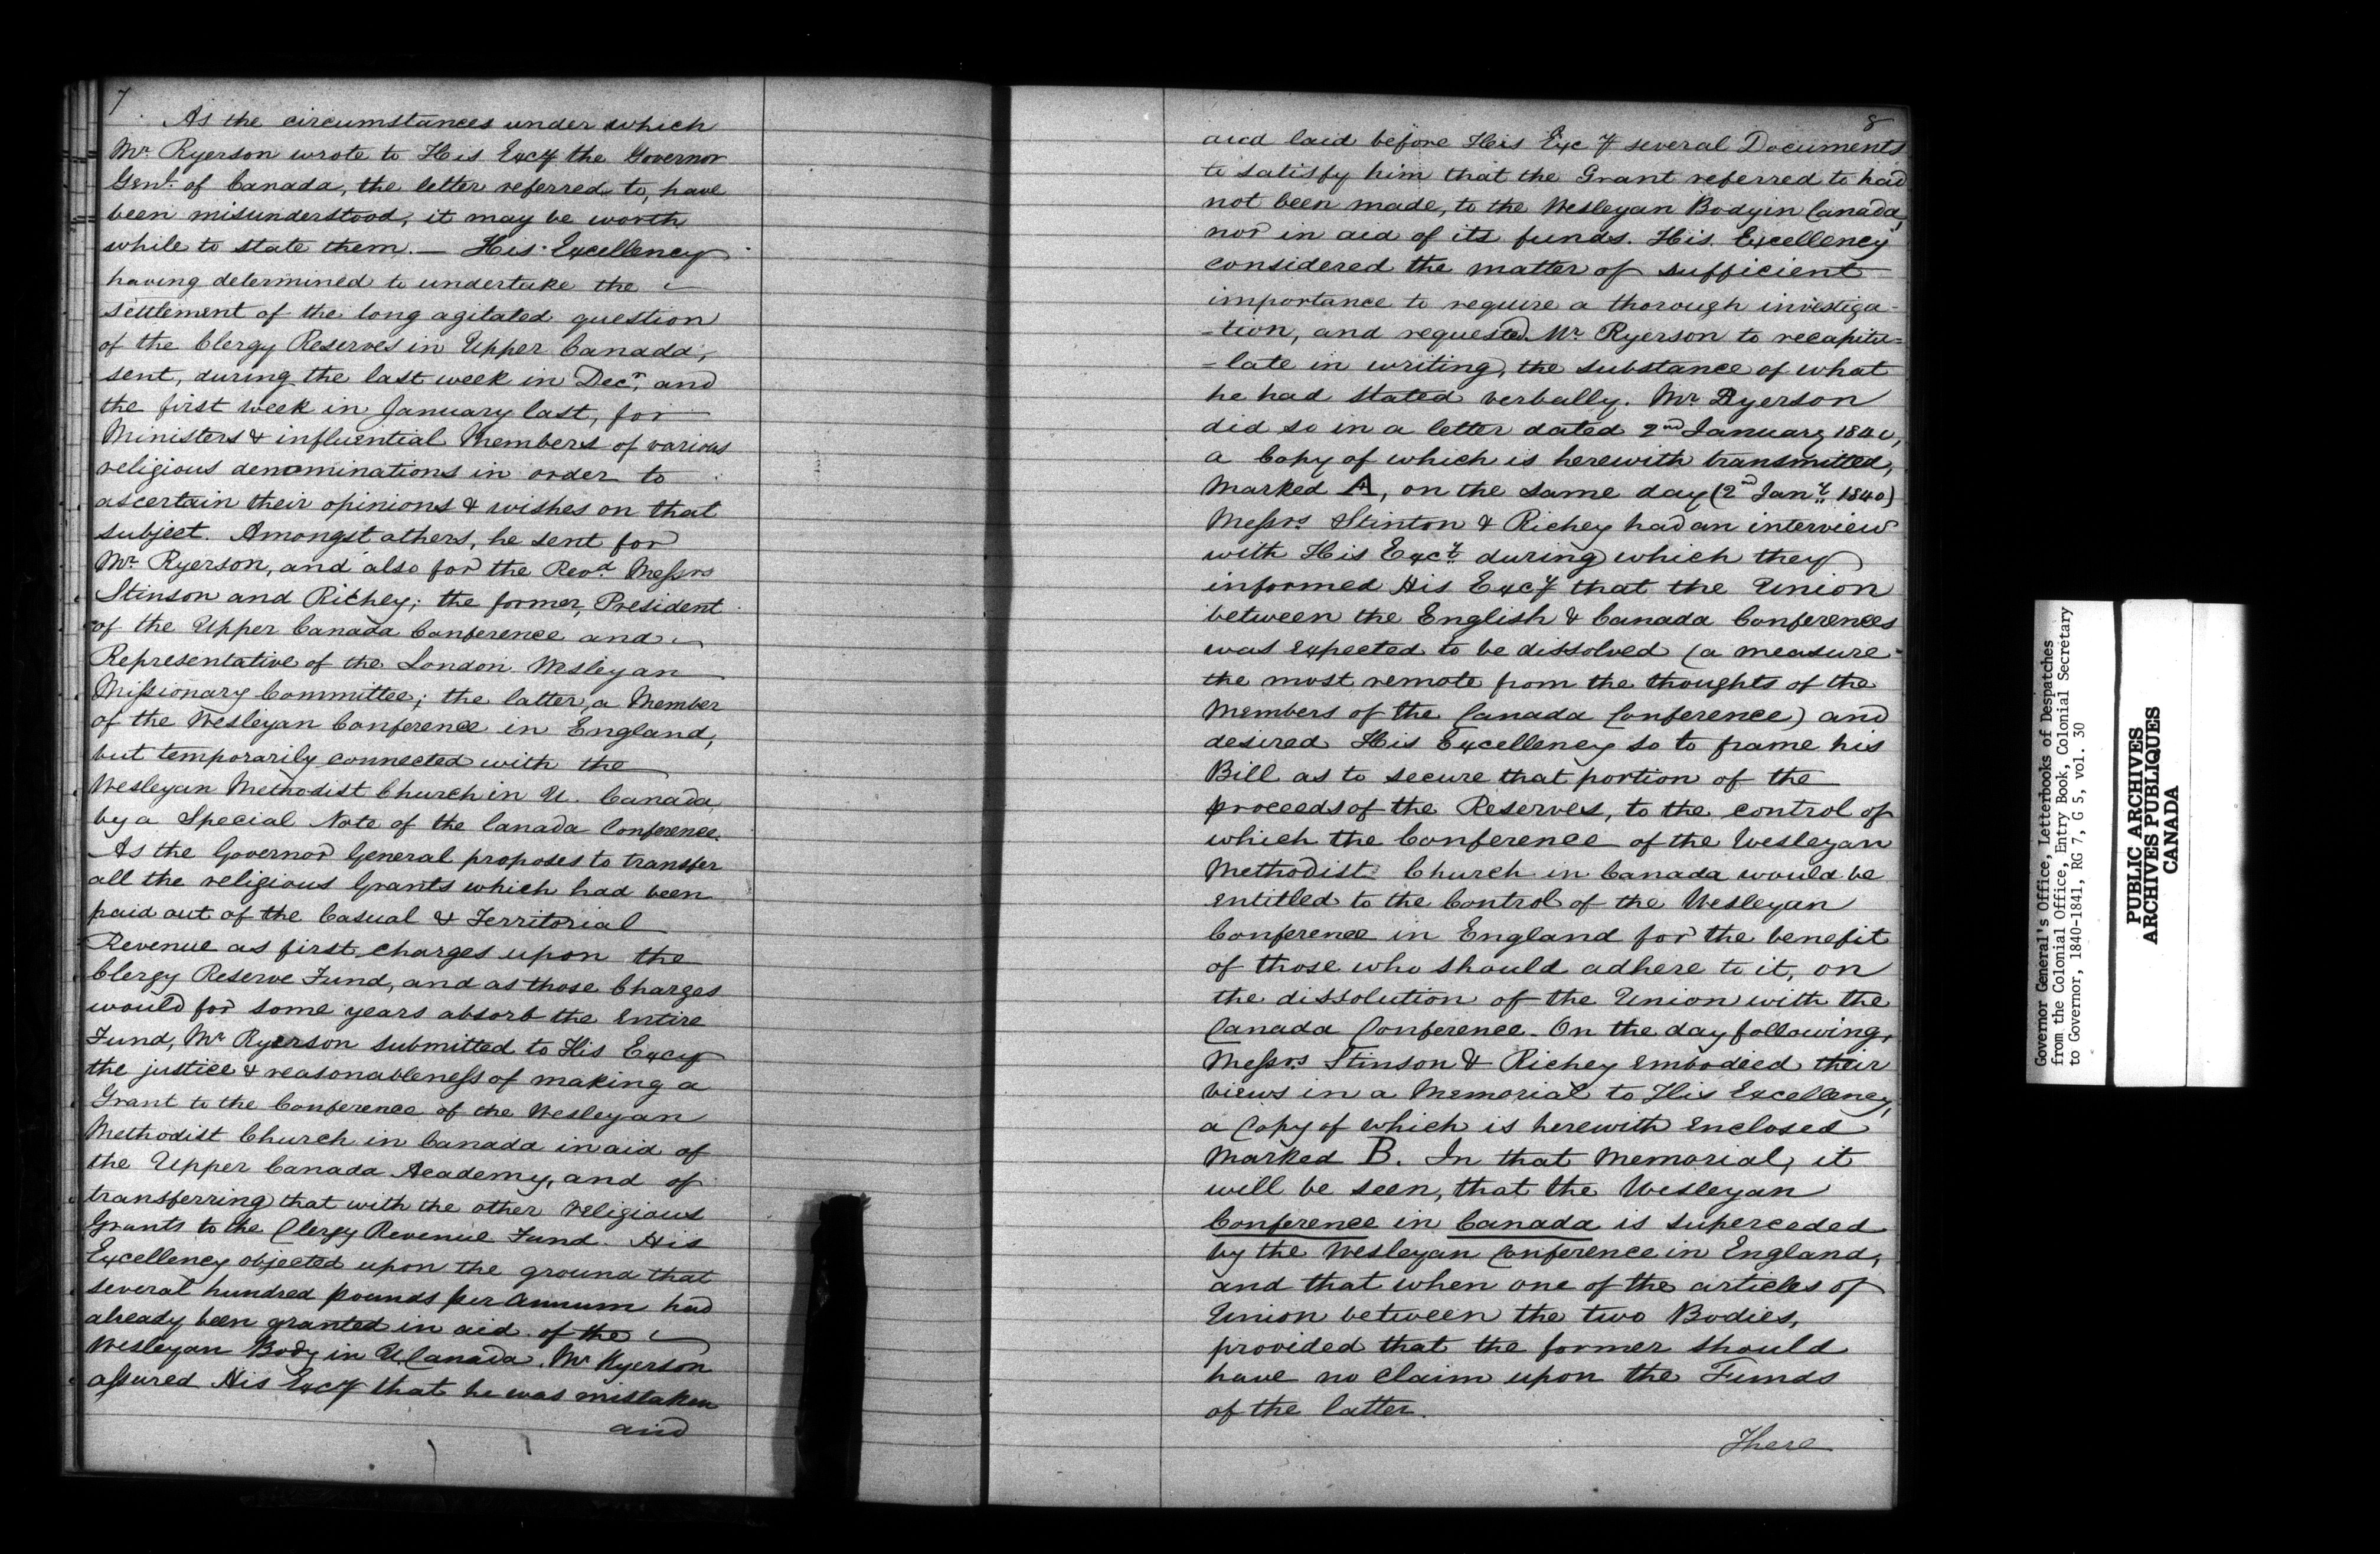 7
As the circumstances under which
Mr. Ryerson wrote to His Excy the Governor
Genl. of Canada, the letter referred to, have
been misunderstood, it may be worth
while to state them. — His Excellency
having determined to undertake the
settlement of the long agitated question
of the Clergy Reserves in Upper Canada,
sent, during the last week in Decr, and
the first week in January last, for
Ministers & influential Members of various
religious denominations in order to
ascertain their opinions & wishes on that
subject. Amongst others, he sent for
Mr. Ryerson, and also for the Revd. Messrs
Stinson and Richey; the former, President
of the Upper Canada Conference and
Representative of the London Wesleyan
Missionary Committee; the latter, a Member
of the Wesleyan Conference in England,
but temporarily connected with the
Wesleyan Methodist Church in U. Canada,
by a Special Note of the Canada Conference.
As the Governor General proposes to transfer
all the religious Grants which had been
paid out of the Casual & Territorial
Revenue as first charges upon the
Clergy Reserve Fund, and as those Charges
would for some years absorb the entire
Fund, Mr Ryerson submitted to His Excy
the justice & reasonableness of making a
Grant to the Conference of the Wesleyan
Methodist Church in Canada in aid of
the Upper Canada Academy, and of
transferring that with the other religious
Grants to the Clergy Revenue Fund. His
Excellency objected upon the ground that
several hundred pounds per Annum had
already been granted in aid of the
Wesleyan Body in U Canada. Mr Ryerson
assured His Excy that he was mistaken
and
8
and laid before His Excy several Documents
to satisfy him that the Grant referred to had
not been made, to the Wesleyan Body in Canada,
nor in aid of its funds. His Excellency
considered the matter of sufficient
importance to require a thorough investiga-
-tion, and requested Mr Ryerson to recapitu=
=late in writing, the substance of what
he had stated verbally. Mr Ryerson
did so in a letter dated 2nd January 1840,
a Copy of which is herewith transmitted,
Marked A, on the same day (2d Jany 1840)
Messrs Stinton & Richey had an interview
with His Excy. during which they
informed His Excy that the Union
between the English & Canada Conferences
was expected to be dissolved (a measure
the most remote from the thoughts of the
Members of the Canada Conference) and
desired His Excellency so to frame his
Bill as to secure that portion of the
proceeds of the Reserves, to the control of
which the Conference of the Wesleyan
Methodist Church in Canada would be
entitled to the Control of the Wesleyan
Conference in England for the benefit
of those who should adhere to it, on
the dissolution of the Union with the
Canada Conference. On the day following,
Messrs. Stinson & Richey embodied their
views in a Memorial to His Excellency,
a Copy of which is herewith enclosed
Marked B. In that Memorial, it
will be seen, that the Wesleyan
Conference in Canada is superceded
by the Wesleyan Conference in England,
and that when one of the articles of
Union between the two Bodies,
provided that the former should
have no claim upon the Funds
of the latter.
There
Governor General's Office, Letterbooks of Despatches
from the Colonial Office, Entry Book, Colonial Secretary
to Governor, 1840-1841, RG 7, G 5, vol. 30
PUBLIC ARCHIVES
ARCHIVES PUBLIQUES
CANADA